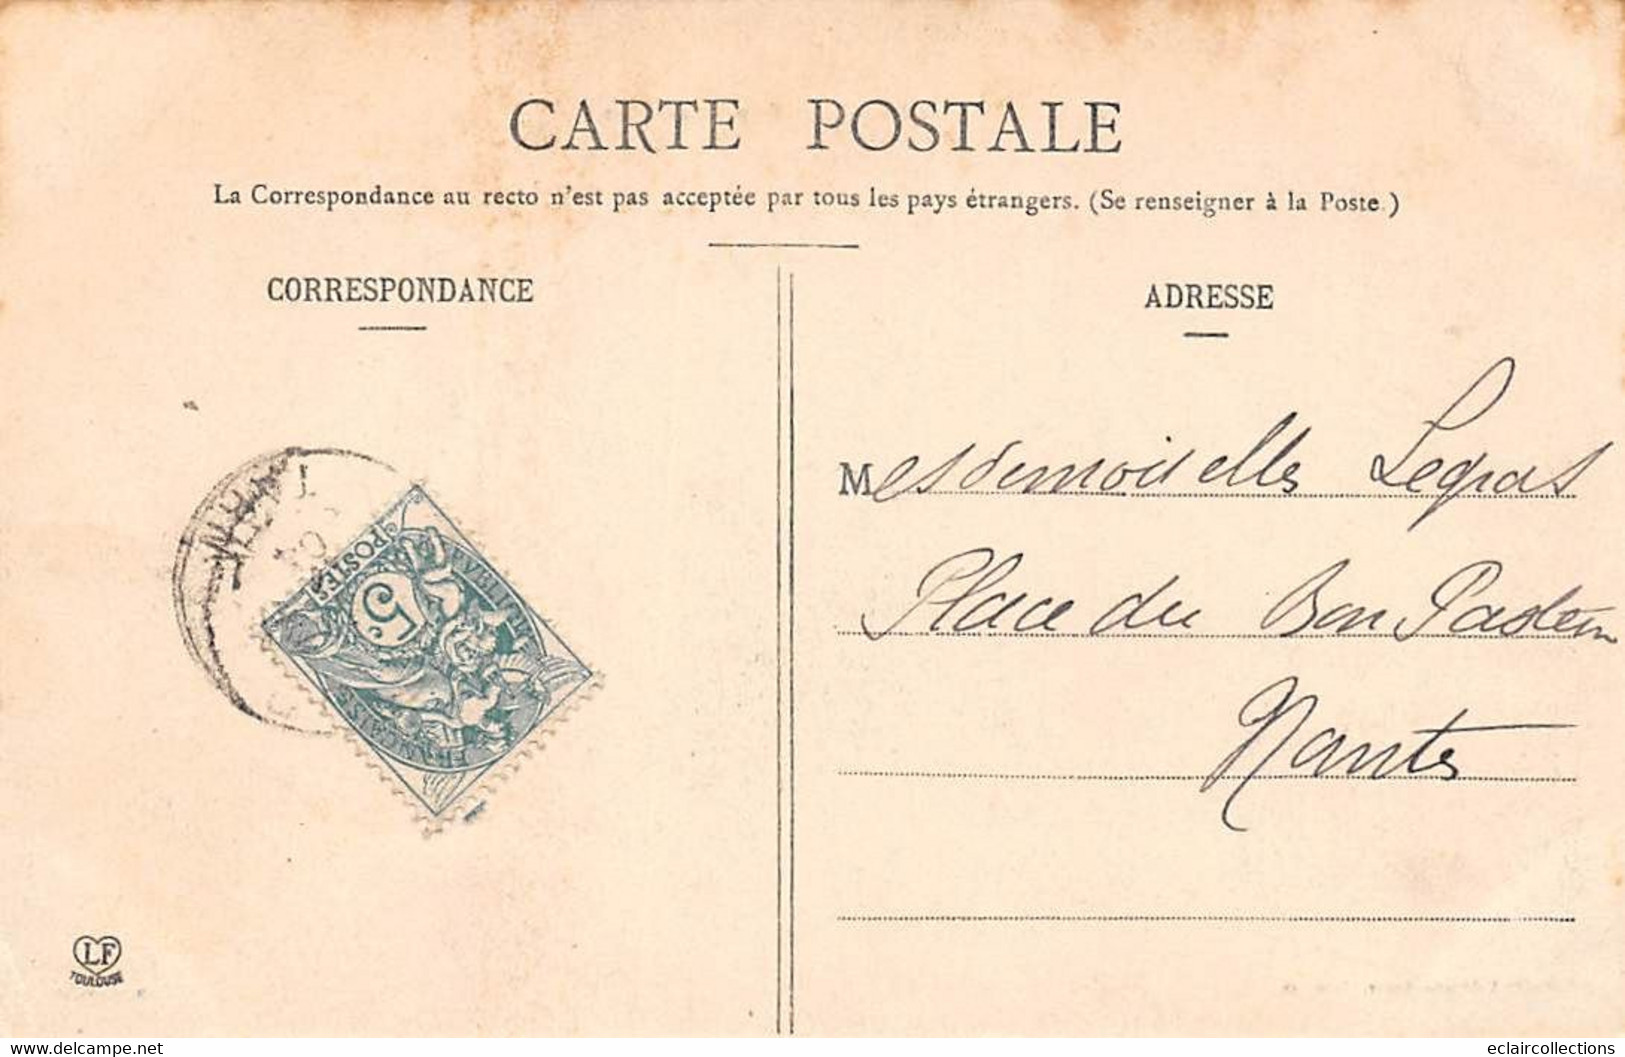 CARTE POSTALE
La Correspondance au recto n'est pas acceptée par tous les pays étrangers. (Se renseigner à la Poste.)
CORRESPONDANCE
ADRESSE
Mesdemoiselles Legras
Place du Bon Pasteur
Nantes
POSTES
5c
REPVBLIQVE
FRANÇAISE
LF
TOULOUSE
www.delcampe.net
eclaircollections